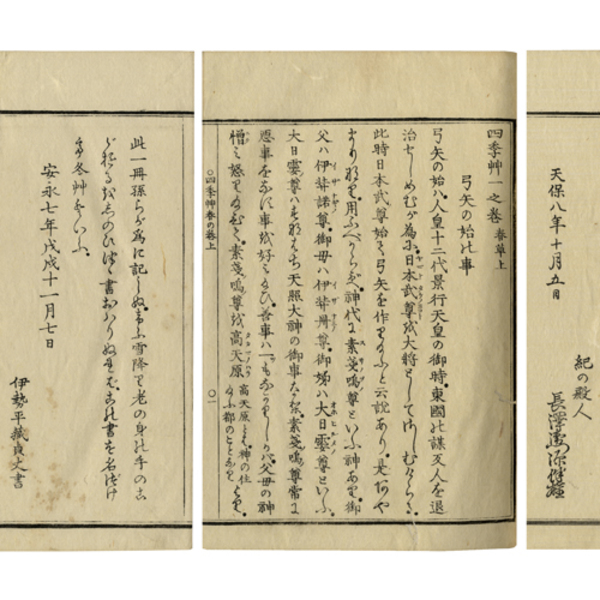 天保八年十月五日
紀の殿人
長澤
四季艸一之巻 春草上
弓矢の始の事
弓矢の始ハ人皇十二代景行天皇の御時東國の謀叛人を退
治せしめむが為に日本武尊を大将としてつかはしむけらる
此時日本武尊始て弓矢を作り玉ふと云説あり是あや
まりなり用ふべからず神代に素戔嗚尊といふ神あり御
父ハ伊弉諾尊御母ハ伊弉冊尊御姉ハ大日孁尊といふ
大日孁尊ハすなはち天照大神の御事なり素戔嗚尊常に
悪事をなす事を好ミ玉ひ善事ハ一もなかりしかバ父母の神
憎ミ怒り 素戔嗚尊を高天原
高天原とハ神の住
都のことなり
四季艸春の巻上
〇一
此一冊孫らが為に記しぬ 雪降り老の身の手のこ
書 ぬれバこの書を名づけ
て冬艸といふ
安永七年戊戌十一月七日
伊勢平藏貞丈書